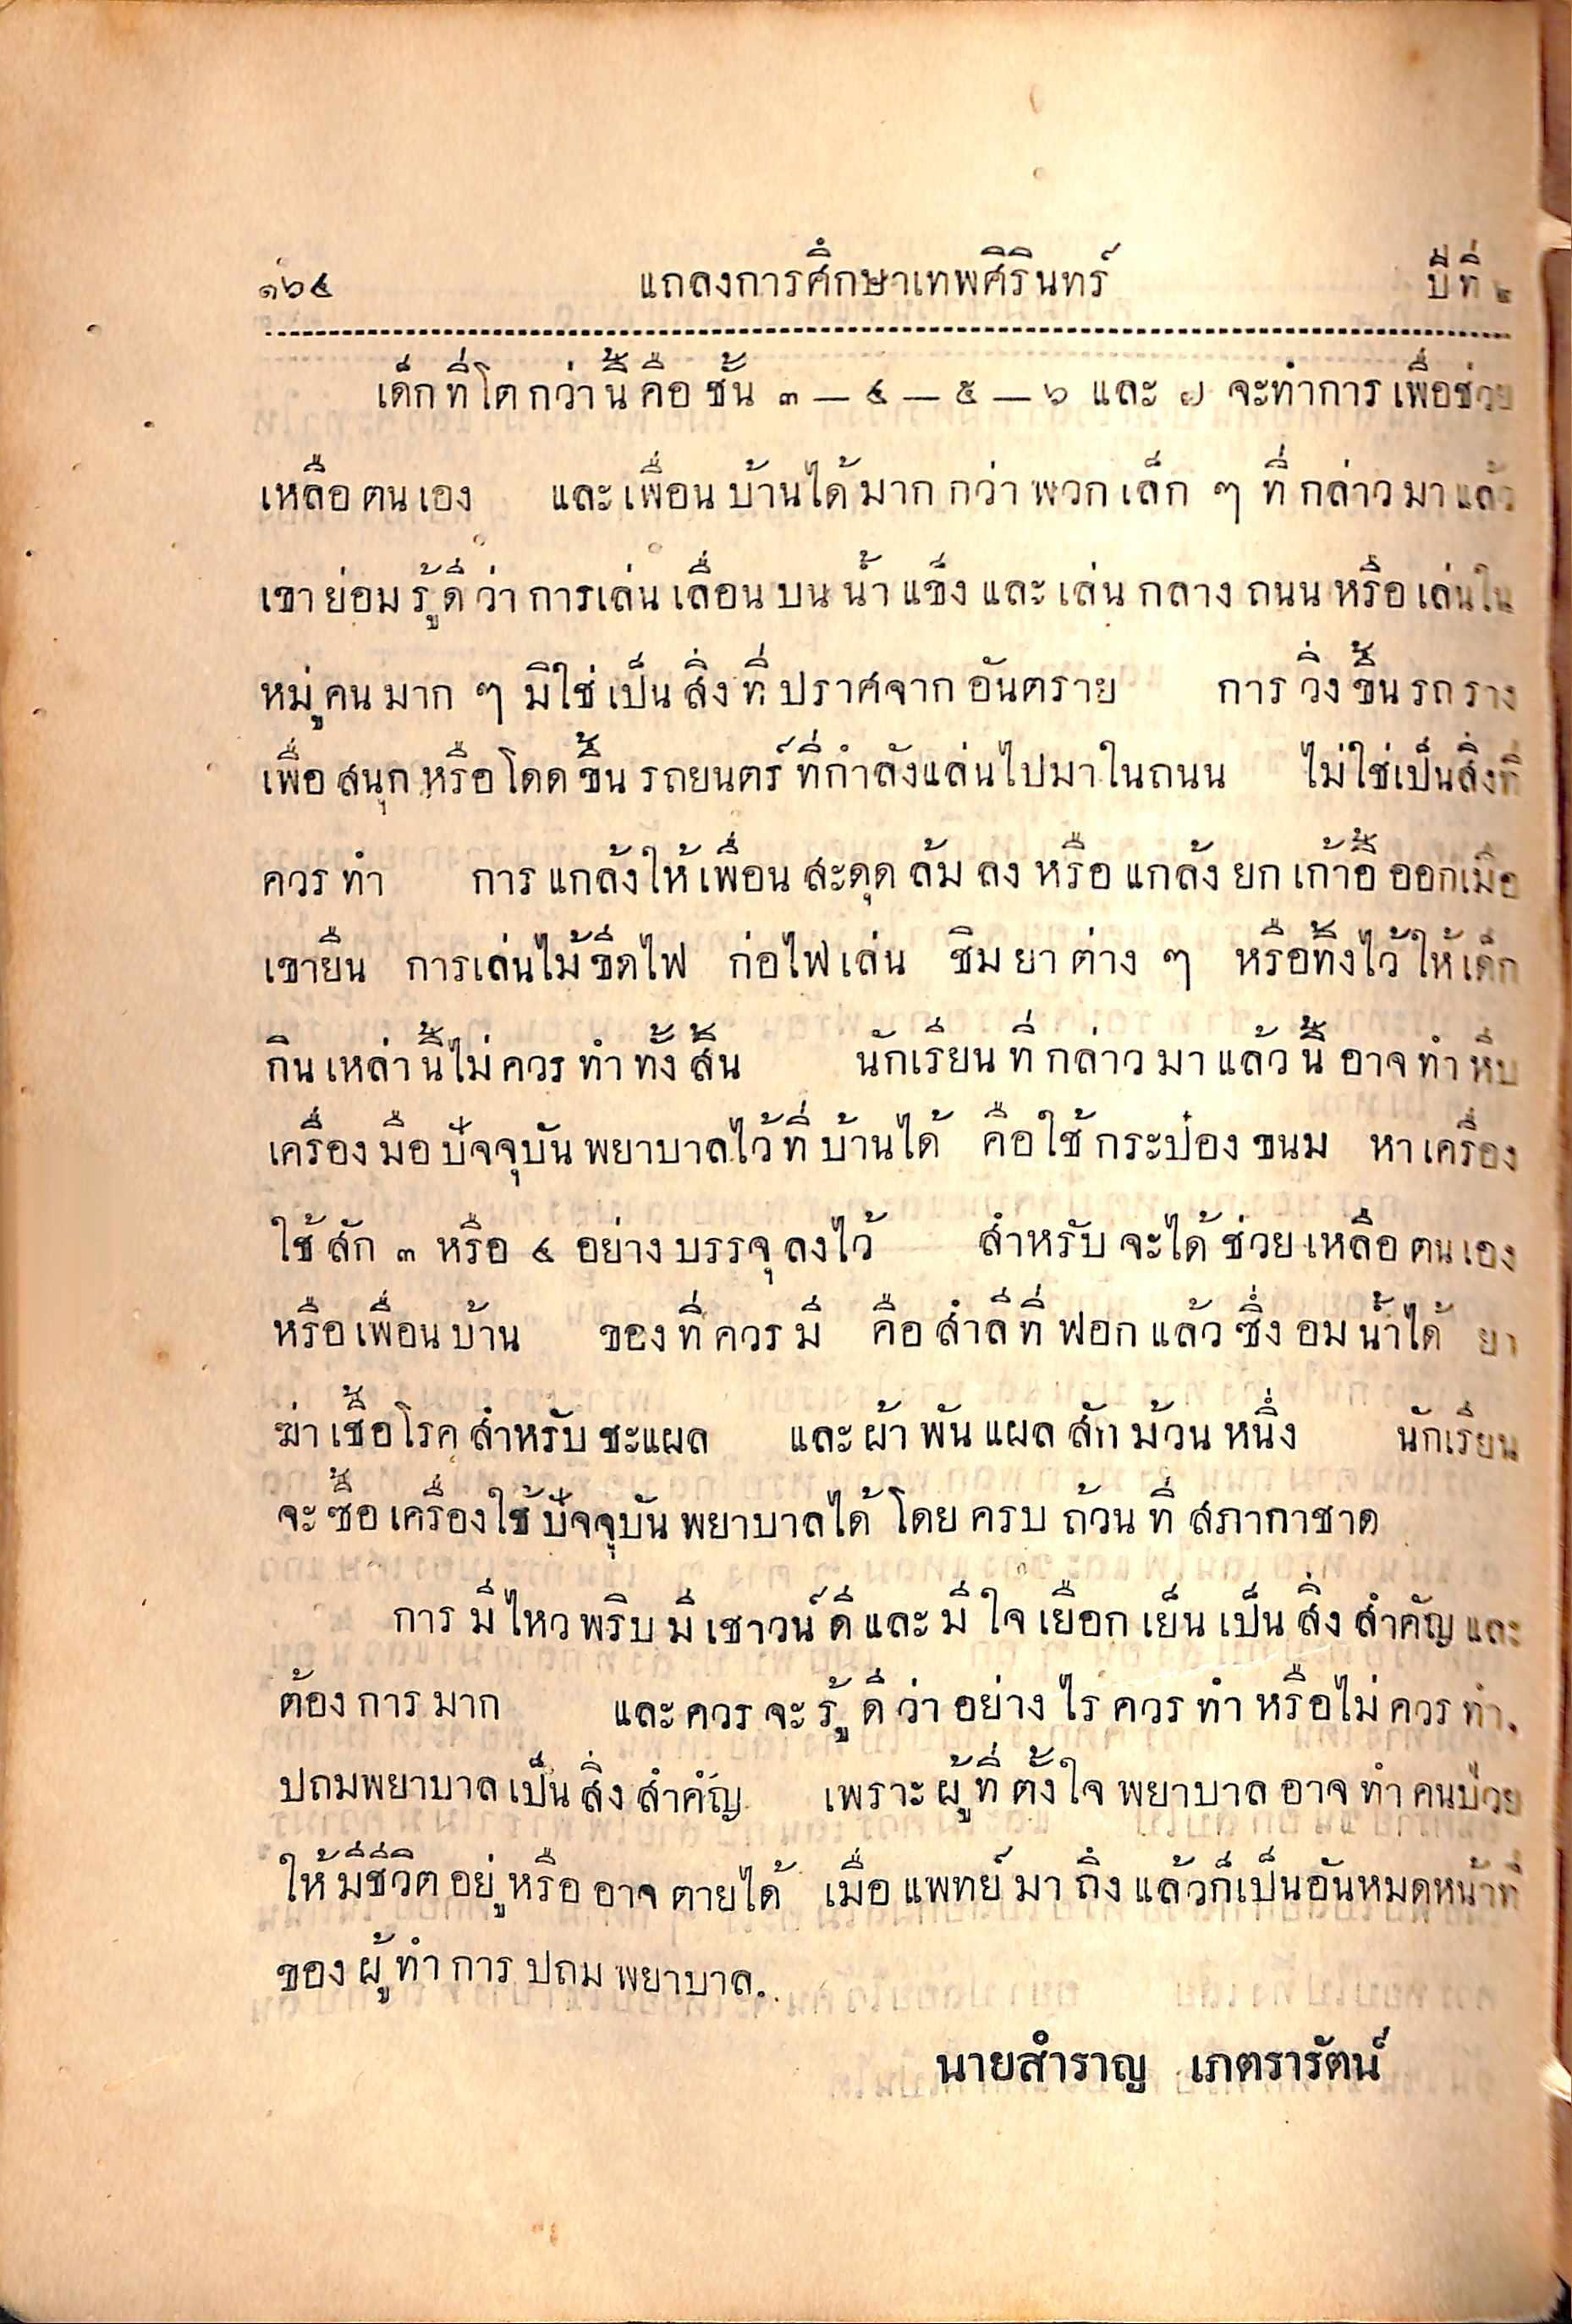 ๑๖๔ แถลงการศึกษาเทพศิรินทร์ ปีที่ ๒
เด็กที่โตกว่านี้คือ ชั้น ๓ — ๔ — ๕ — ๖ และ ๗ จะทำการเพื่อช่วย
เหลือตนเอง และเพื่อนบ้านได้มากกว่าพวกเล็ก ๆ ที่กล่าวมาแล้ว
เขาย่อมรู้ดีว่าการเล่นเลื่อนบนน้ำแข็งและเล่นกลางถนนหรือเล่นใน
หมู่คนมาก ๆ มิใช่เป็นสิ่งที่ปราศจากอันตราย การวิ่งขึ้นรถราง
เพื่อสนุกหรือโดดขึ้นรถยนตร์ที่กำลังแล่นไปมาในถนน ไม่ใช่เป็นสิ่งที่
ควรทำ การแกล้งให้เพื่อนสะดุดล้มลงหรือแกล้งยกเก้าอี้ออกเมื่อ
เขายืน การเล่นไม้ขีดไฟ ก่อไฟเล่น ชิมยาต่าง ๆ หรือทิ้งไว้ให้เด็ก
กินเหล่านี้ไม่ควรทำทั้งสิ้น นักเรียนที่กล่าวมาแล้วนี้อาจทำหีบ
เครื่องมือปัจจุบันพยาบาลไว้ที่บ้านได้ คือใช้กระป๋องขนม หาเครื่อง
ใช้สัก ๓ หรือ ๔ อย่างบรรจุลงไว้ สำหรับจะได้ช่วยเหลือตนเอง
หรือเพื่อนบ้าน ของที่ควรมี คือสำลีที่ฟอกแล้วซึ่งอมน้ำได้ ยา
ฆ่าเชื้อโรคสำหรับชะแผล และผ้าพันแผลสักม้วนหนึ่ง นักเรียน
จะซื้อเครื่องใช้ปัจจุบันพยาบาลได้โดยครบถ้วนที่สภากาชาด
การมีไหวพริบมีเชาวน์ดีและมีใจเยือกเย็นเป็นสิ่งสำคัญและ
ต้องการมาก และควรจะรู้ดีว่าอย่างไรควรทำหรือไม่ควรทำ.
ปถมพยาบาลเป็นสิ่งสำคัญ เพราะผู้ที่ตั้งใจพยาบาลอาจทำคนป่วย
ให้มีชีวิตอยู่หรืออาจตายได้ เมื่อแพทย์มาถึงแล้วก็เป็นอันหมดหน้าที่
ของผู้ทำการปถมพยาบาล.
นายสำราญ เภตรารัตน์